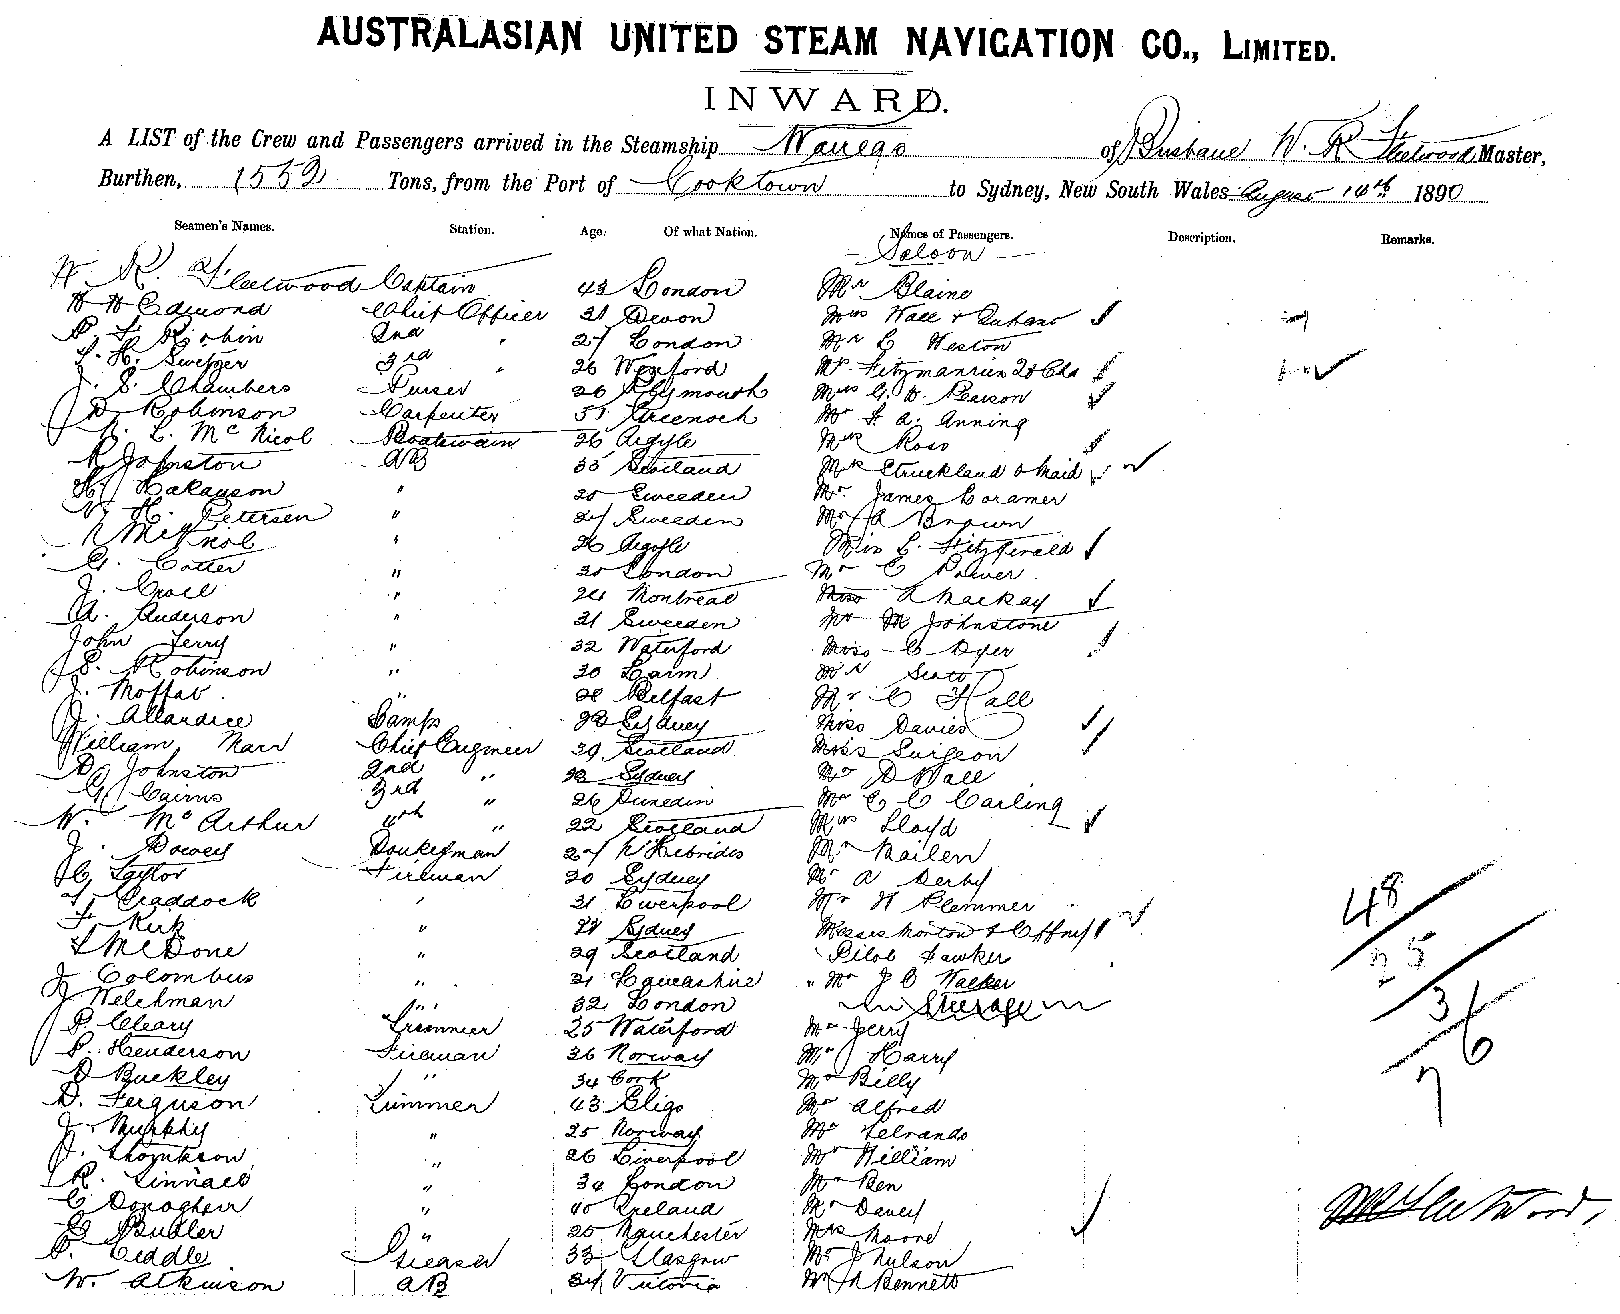 AUSTRALASIAN UNITED STEAM NAVIGATION CO., LIMITED.
INWARD.
A LIST of the Crew and Passengers arrived in the Steamship Warrego of Brisbane W. R. Fleetwood Master,
Burthen, 1552 Tons, from the Port of Cooktown to Sydney, New South Wales August 14th 1890
Seamen's Names. Station. Age. Of what Nation. Names of Passengers. Description. Remarks.
Saloon
W R. Fleetwood Captain 43 London Mr Blaine
W W Edmond Chief Officer 31 Devon Mrs Wall &
Robin 2nd " 27 London Mr C Weston
Switzer 3rd " 26 Wexford
J. S. Chambers Purser 26 Plymouth Mrs G. W. Pearson
D Robinson Carpenter 51 Greenock Mr F. A. Anning
L. McNicol Boatswain 26 Argyle Mrs Ross
R Johnston AB 33 Scotland Mrs Struckland & Maid
Hakanson " 20 Sweeden Mr. James Coramer
H. Petersen " 24 Sweeden Mr A Brown
" 26 Argyle Miss L. Fitzgerald
G. Cotter " 30 London Mr C Power
" 24 Montreal Miss A Mackay
A. Anderson " 21 Sweeden Mr M Johnstone
John Terry " 32 Waterford Miss C Dyer
S. Robinson " 30 Mr Scott
J. Moffat " 28 Belfast Mr C Hall
J. Allardice Lamps Sydney Miss Davies
William Marr Chief Engineer 39 Scotland Miss Surgeon
D Johnston 2nd " Sydney Mr D Wall
G Cairns 3rd " 26 Dunedin Mr C C Carling
W. McArthur 4th " 22 Scotland Mrs Lloyd
J. Dowey Donkeyman 27 N Hebrides Mr Bailen
Taylor Fireman 20 Sydney Mr A Derby
Craddock " 31 Liverpool Mr H Plemmer
F. Kirk " Sydney Messrs Morton &
" 29 Scotland Pilot Fawker
J Colombus " 31 Lancashire " Mr J C Walker
J Welchman " 32 London In Steerage
P. Cleary Trimmer 25 Waterford Mr Jerry
P. Henderson Fireman 36 Norway Mr Harry
D Buckley " 34 Cork Mr Billy
D. Ferguson Trimmer 43 Sligo Mr Alfred
J. Murphy " 25 Norway Mr Selrando
J. Thompson " 26 Liverpool Mr William
R. Sinnaco " 34 London Mr Ben
C Donaghur " 40 Ireland Mr Davey
G Butler " 25 Manchester Mrs Moore
Liddle Greaser 33 Glasgow Mr J Nulson
W. Atkinson AB Victoria Mr A Bennett
48
25
3
76
W R Fleetwood,